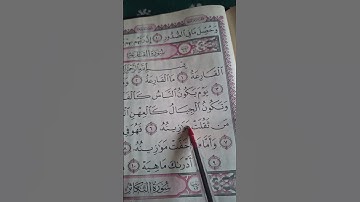 وَحُصِّلَ مَا فِي الصُّدُورِ ۝ إِنَّ رَبَّهُم بِهِم
سُورَةُ القَارِعَةِ
الْقَارِعَةُ ۝ مَا الْقَارِعَةُ
يَوْمَ يَكُونُ النَّاسُ كَالْفَ
وَتَكُونُ الْجِبَالُ كَالْعِهْنِ
مَن ثَقُلَتْ مَوَازِينُهُ ۝ فَهُوَ
وَأَمَّا خَفَّتْ مَوَازِينُهُ
أَدْرَىٰكَ مَاهِيَهْ ۝
سُورَةُ التَّكَاثُرِ